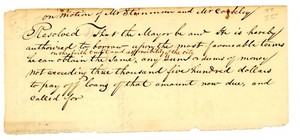 on motion of Mr Stevenson and Mr Coakley
Resolved That the Mayor be and He is hereby
authorized to borrow upon the most favourable terms
on the full credit and responsibility of the city
he can obtain the same, any sum or sums of money
not exceeding three thousand five hundred dollars
to pay off loans of that amount now due, and
called for